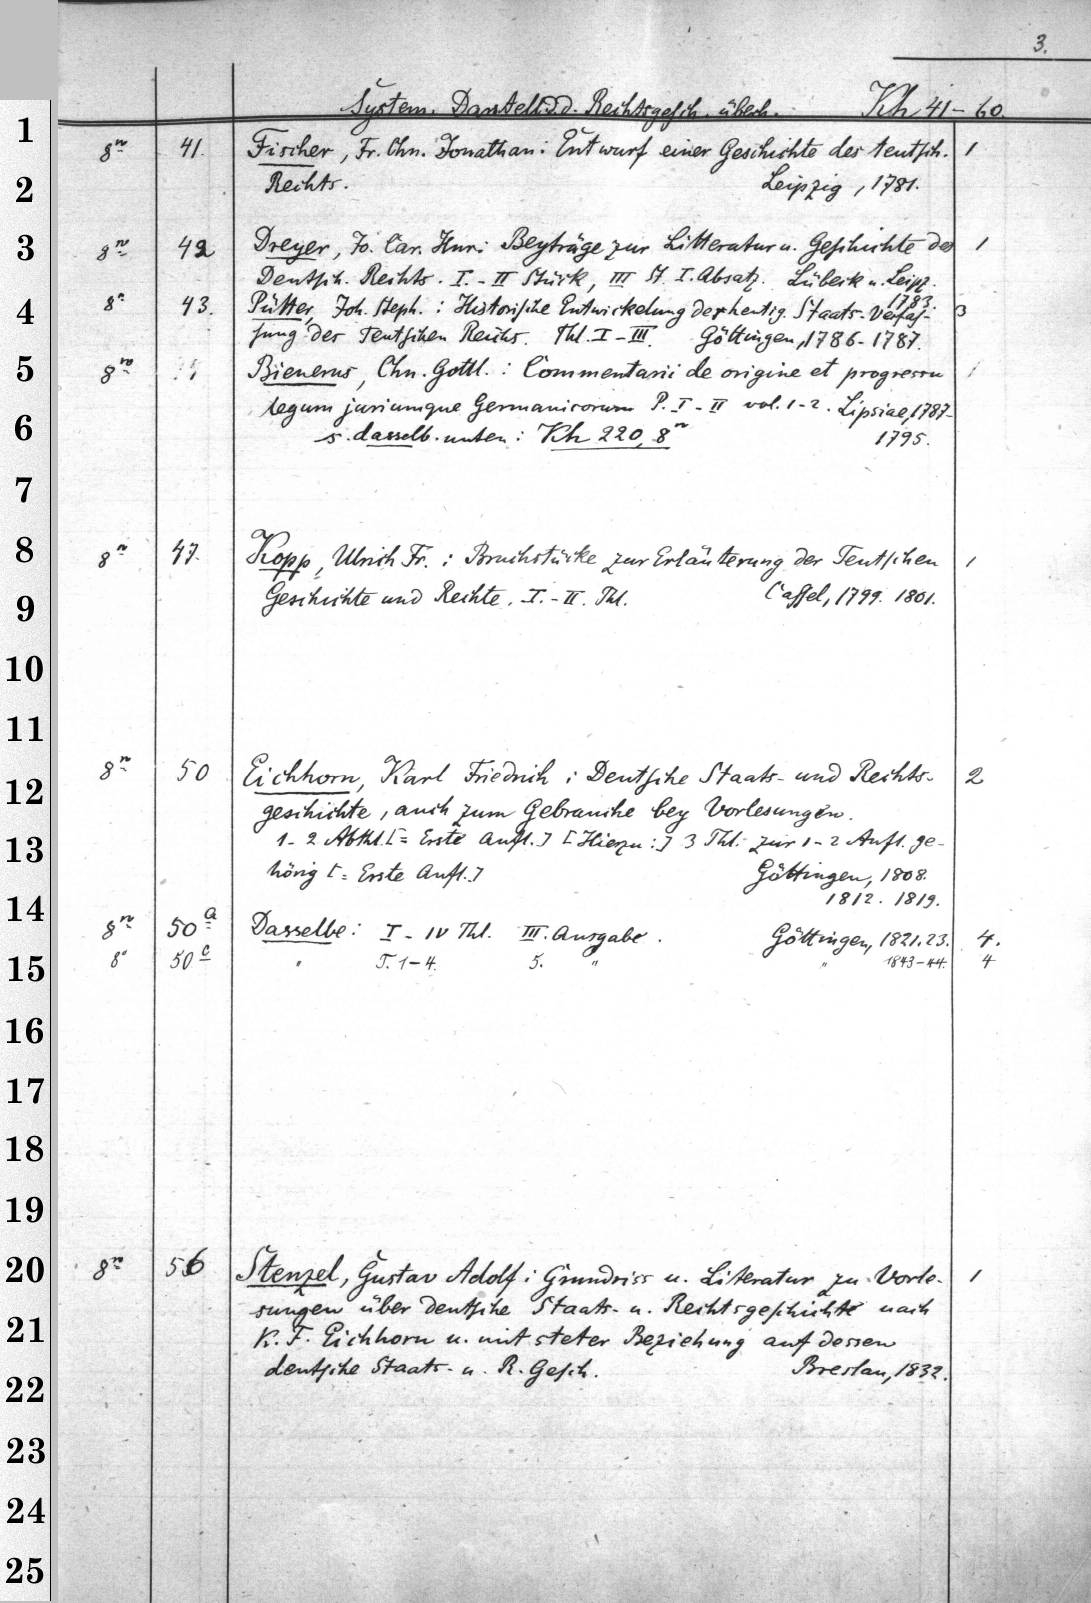 3.
System. Darstell. d. d. Rechtsgesch. überh. Kh 41-60.
1
8º 41. Fischer, Fr. Chn. Jonathan: Entwurf einer Geschichte des teutsch. 1
2 Rechts. Leipzig, 1781.
3 8º 42 Dreyer, Jo. Car. Henr: Beyträge zur Litteratur u. Geschichte des 1
Deutsch. Rechts. I.-II Stück, III St. I. Absatz. Lübeck u. Leipz.
1783.
4 8º 43. Pütter, Joh. Steph.: Historische Entwickelung der heutig. Staats-Verfas- 3
sung des Teutschen Reichs. Thl. I-III. Göttingen, 1786-1787.
5 8º Bienerus, Chn. Gottl.: Commentarii de origine et progressu 1
legum juriumque Germanicorum P. I-II vol. 1-2. Lipsiae, 1787-
6 s. dasselb. unten: Kh 220, 8º 1795.
7
8 8º 47. Kopp, Ulrich Fr.: Bruchstücke zur Erläuterung der Teutschen 1
9 Geschichte und Rechte. I.-II. Thl. Cassel, 1799. 1801.
10
11
12 8º 50 Eichhorn, Karl Friedrich: Deutsche Staats- und Rechts- 2
geschichte, auch zum Gebrauche bey Vorlesungen.
13 1-2 Abthl. [= Erste Aufl.] [Hierzu:] 3 Thl: zur 1-2 Aufl. ge-
hörig [= Erste Aufl.] Göttingen, 1808.
1812. 1819.
14 8º 50a Dasselbe: I-IV Thl. III. Ausgabe. Göttingen, 1821.23. 4.
15 8º 50c " T. 1-4. 5. " " 1843-44. 4
16
17
18
19
20 8º 56 Stenzel, Gustav Adolf: Grundriss u. Literatur zu Vorle- 1
sungen über deutsche Staats- u. Rechtsgeschichte nach
21 K. F. Eichhorn u. mit steter Beziehung auf dessen
22 deutsche Staats- u. R. Gesch. Breslau, 1832.
23
24
25